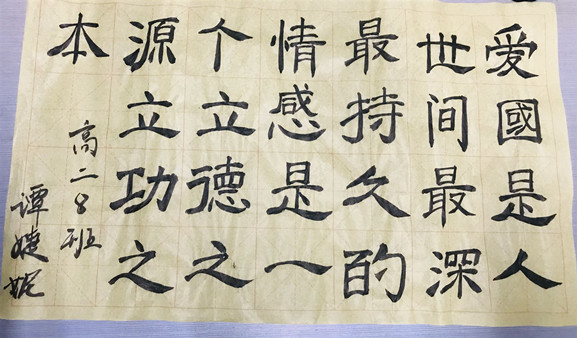 爱國是人
世间最深
最持久的
情感是一
个立德之
源立功之
本
高二8班
谭婕妮